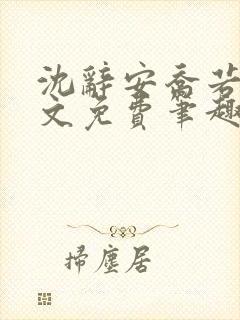 沈辭安喬若
文免費筆趣
掃塵居